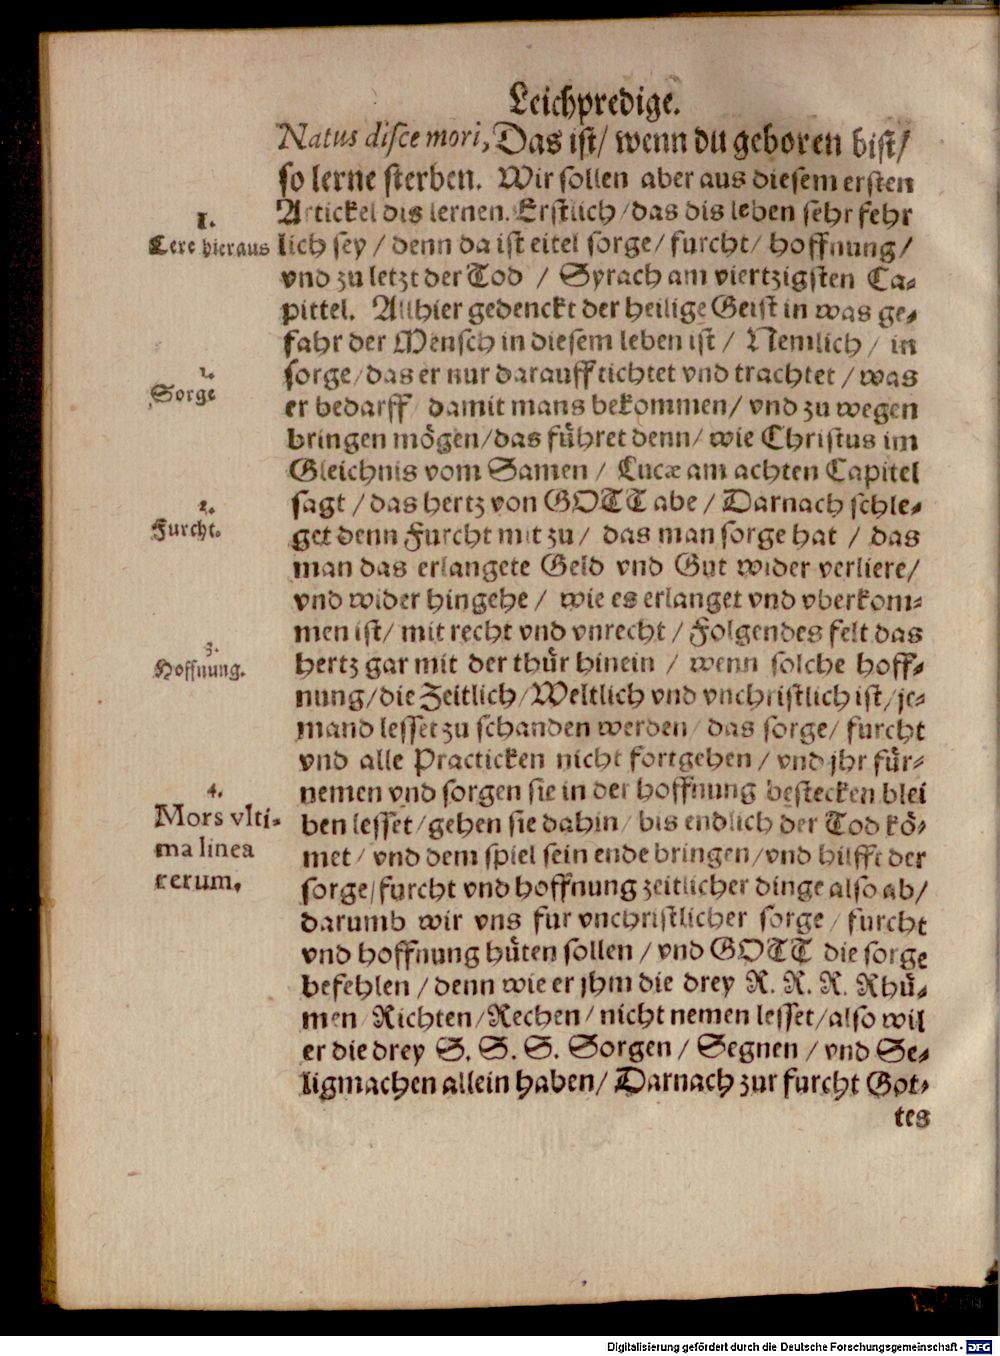 Leichpredige.
Natus disce mori, Das ist/ wenn du geboren bist/
so lerne sterben. Wir sollen aber aus diesem ersten
Artickel dis lernen. Erstlich/das dis leben sehr fehr
1.
Lere hieraus
lich sey / denn da ist eitel sorge/ furcht/ hoffnung/
vnd zu letzt der Tod / Syrach am viertzigsten Ca-
pittel. Allhier gedenckt der heilige Geist in was ge-
fahr der Mensch in diesem leben ist / Nemlich / in
1.
Sorge
sorge/das er nur darauff tichtet vnd trachtet / was
er bedarff/ damit mans bekommen/ vnd zu wegen
bringen mögen/das führet denn/ wie Christus im
Gleichnis vom Samen / Lucæ am achten Capitel
2.
Furcht.
sagt / das hertz von GOTT abe / Darnach schle-
get denn Furcht mit zu / das man sorge hat / das
man das erlangete Geld vnd Gut wider verliere/
vnd wider hingehe / wie es erlanget vnd vberkom-
men ist/ mit recht vnd vnrecht / Folgendes felt das
3.
Hoffnung.
hertz gar mit der thür hinein / wenn solche hoff-
nung/die Zeitlich/Weltlich vnd vnchristlich ist/je-
mand lesset zu schanden werden/ das sorge/ furcht
vnd alle Practicken nicht fortgehen / vnd jhr für-
4.
Mors vlti-
ma linea
rerum.
nemen vnd sorgen sie in der hoffnung bestecken blei
ben lesset/gehen sie dahin/ bis endlich der Tod kö-
met/ vnd dem spiel sein ende bringen/vnd hilfft der
sorge/furcht vnd hoffnung zeitlicher dinge also ab/
darumb wir vns für vnchristlicher sorge / furcht
vnd hoffnung hüten sollen / vnd GOTT die sorge
befehlen / denn wie er jhm die drey R. R. R. Rhü-
men/Richten/Rechen/ nicht nemen lesset/also wil
er die drey S. S. S. Sorgen / Segnen / vnd Se-
ligmachen allein haben/ Darnach zur furcht Got-
tes
Digitalisierung gefördert durch die Deutsche Forschungsgemeinschaft - DFG